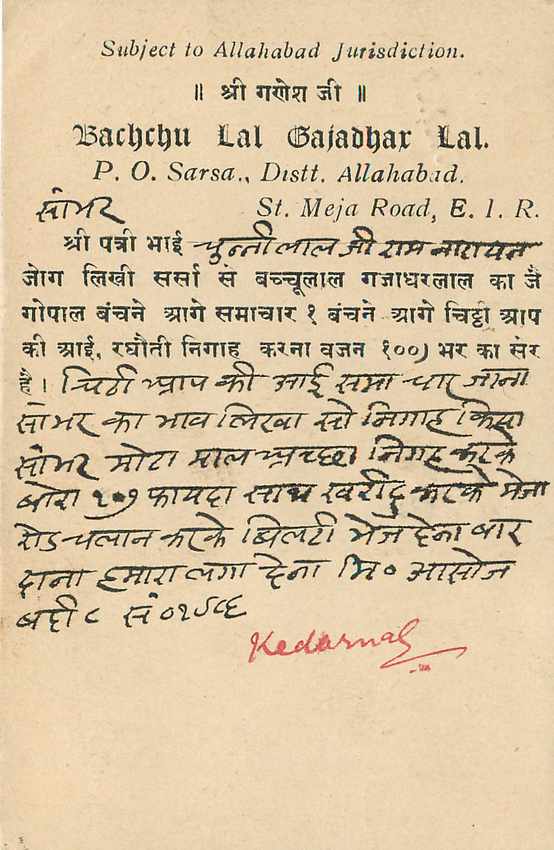 Subject to Allahabad Jurisdiction.
॥ श्री गणेश जी ॥
Bachchu Lal Gajadhar Lal.
P. O. Sarsa., Distt. Allahabad.
सांभर St. Meja Road, E. I. R.
श्री पत्री भाई चुन्नीलाल जी राम नारायन
जोग लिखी सर्सा सं बच्चूलाल गजाधरलाल का जै
गोपाल बंचने आगे समाचार १ बंचने आगे चिट्ठी आप
की आई, रघौती निगाह करना वजन १००) भर का सेर
है। चिठी आप की आई समाचार जाना
सांभर का भाव लिखा सो निगाह किया
सांभर मोटा माल अच्छा निगह करके
बोरा फायदा साथ खरीद करके मेजा
रोड चलान करके बिलटी भेज देना बार
दाना हमारा लगा देना मि० आसोज
बदी ८ सं
Kedarnath